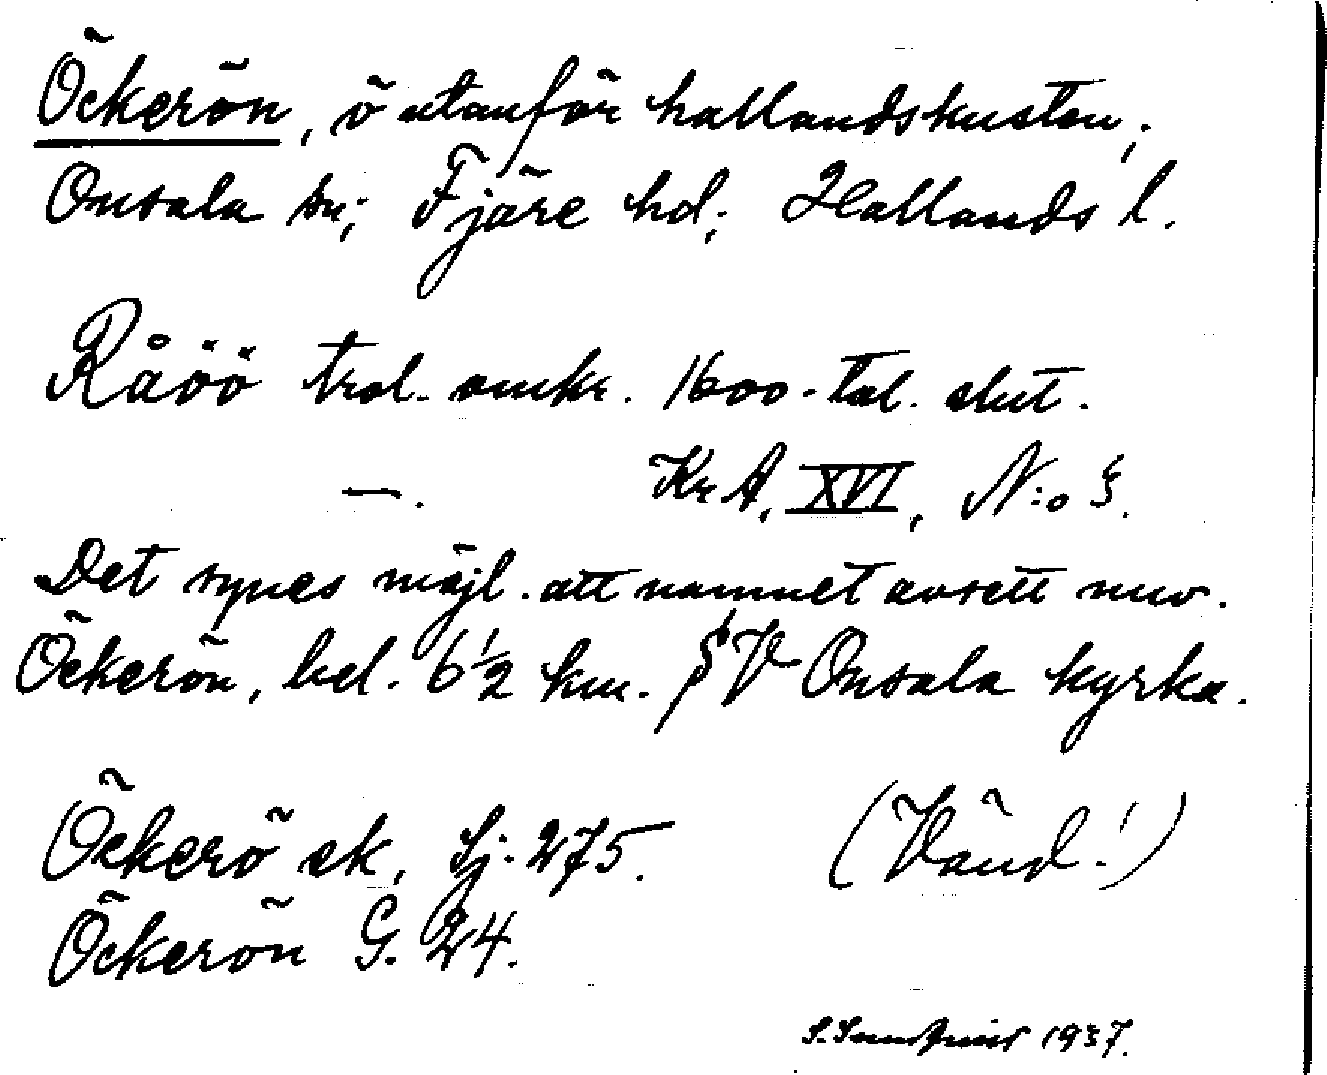 Öckerön, ö utanför hallandskusten,;
Onsala sn; Fjäre hd; Hallands l.
Råöö trol. omkr. 1600-tal. slut.
—. KrA, XVI, N:o 3.
Det synes möjl. att namnet avsett nuv.
Öckerön, bel. 6½ km. SV Onsala kyrka.
Öckerö ek, Sj. 275. (Vänd!)
Öckerön G. 24.
1937.